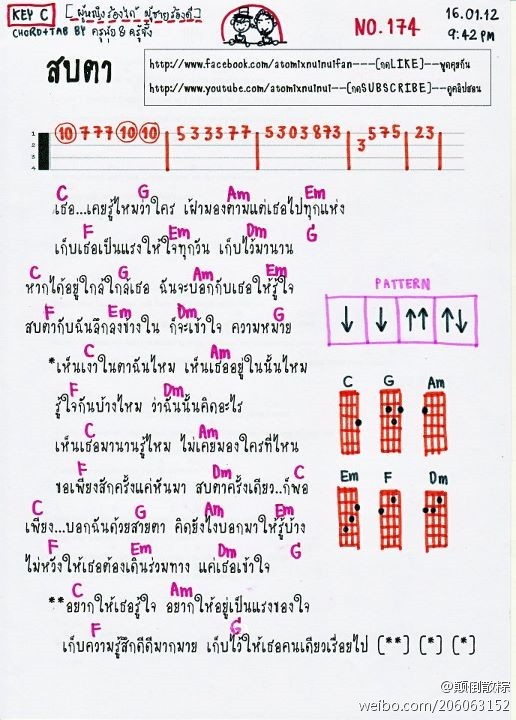 KEY C [ผู้หญิงร้องได้ ผู้ชายร้องดี] NO.174 16.01.12
CHORD+TAB BY ครูนุ้ย & ครูจิ๋ง 9:42 PM
สบตา
http://www.facebook.com/atomixnuinuifan---[กดLIKE]---พูดคุยกัน
http://www.youtube.com/atomixnuinui---[กดSUBSCRIBE]--ดูคลิปสอน
1 10 777 10 10 533377 5303873 575 23
2 3
3
4
C G Am Em
เธอ...เคยรู้ไหมว่าใคร เฝ้ามองตามแต่เธอไปทุกแห่ง
F Em Dm G
เก็บเธอเป็นแรงให้ใจทุกวัน เก็บไว้มานาน
C G Am Em
หากได้อยู่ใกล้ใกล้เธอ ฉันจะบอกกับเธอให้รู้ใจ
F Em Dm G
สบตากับฉันลึกลงข้างใน ก็จะเข้าใจ ความหมาย
PATTERN
↓ ↓ ↑↑ ↑↓
C Am
*เห็นเงาในตาฉันไหม เห็นเธออยู่ในนั้นไหม
F Dm
รู้ใจกันบ้างไหม ว่าฉันนั้นคิดอะไร
C Am
เห็นเธอมานานรู้ไหม ไม่เคยมองใครที่ไหน
F Dm C
ขอเพียงสักครั้งแค่หันมา สบตาครั้งเดียว..ก็พอ
C G Am
Em F Dm
C G Am Em
เพียง...บอกฉันด้วยสายตา คิดยังไงบอกมาให้รู้บ้าง
F Em Dm G
ไม่หวังให้เธอต้องเดินร่วมทาง แค่เธอเข้าใจ
C Am
**อยากให้เธอรู้ใจ อยากให้อยู่เป็นแรงของใจ
F G
เก็บความรู้สึกดีดีมากมาย เก็บไว้ให้เธอคนเดียวเรื่อยไป [**] [*] [*]
@颠倒散棕
weibo.com/206063152